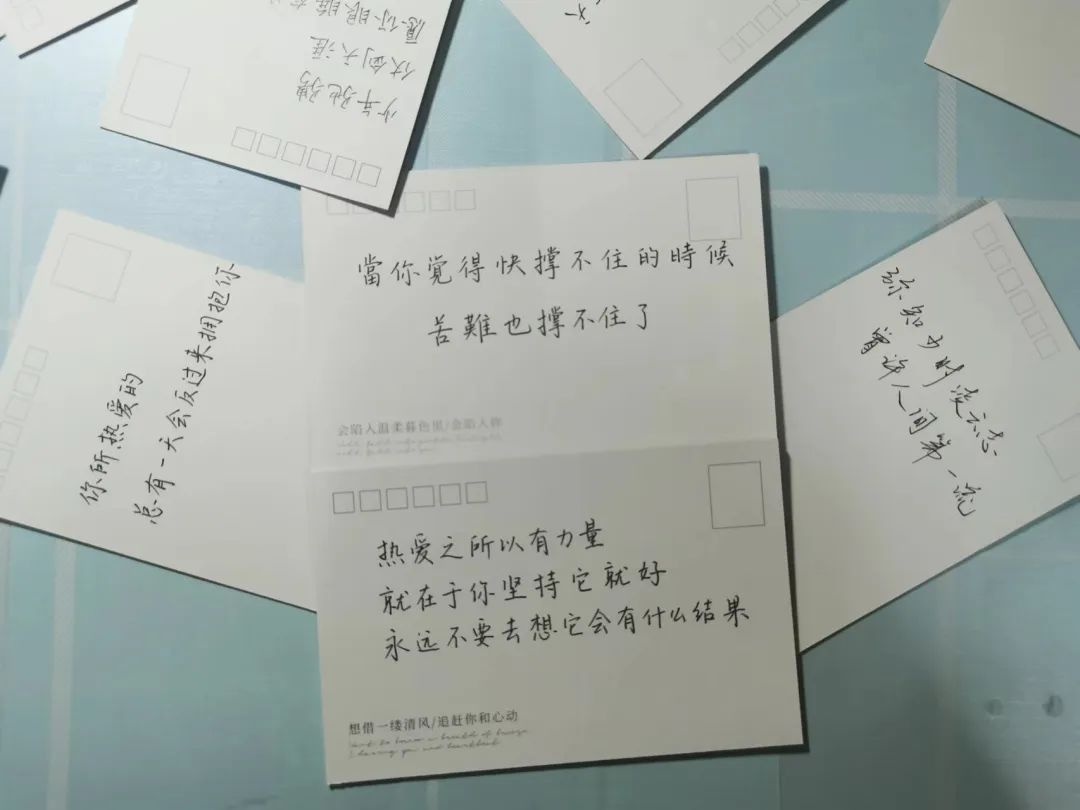 少年驰骋
仗剑天涯
愿你眼眸有
當你觉得快撑不住的時候
苦難也撑不住了
会陷入温柔暮色里/会陷入你
你所热爱的
总有一天会反过来拥抱你
弥知少时凌云志
曾许人间第一流
热爱之所以有力量
就在于你坚持它就好
永远不要去想它会有什么结果
想借一缕清风/追赶你和心动